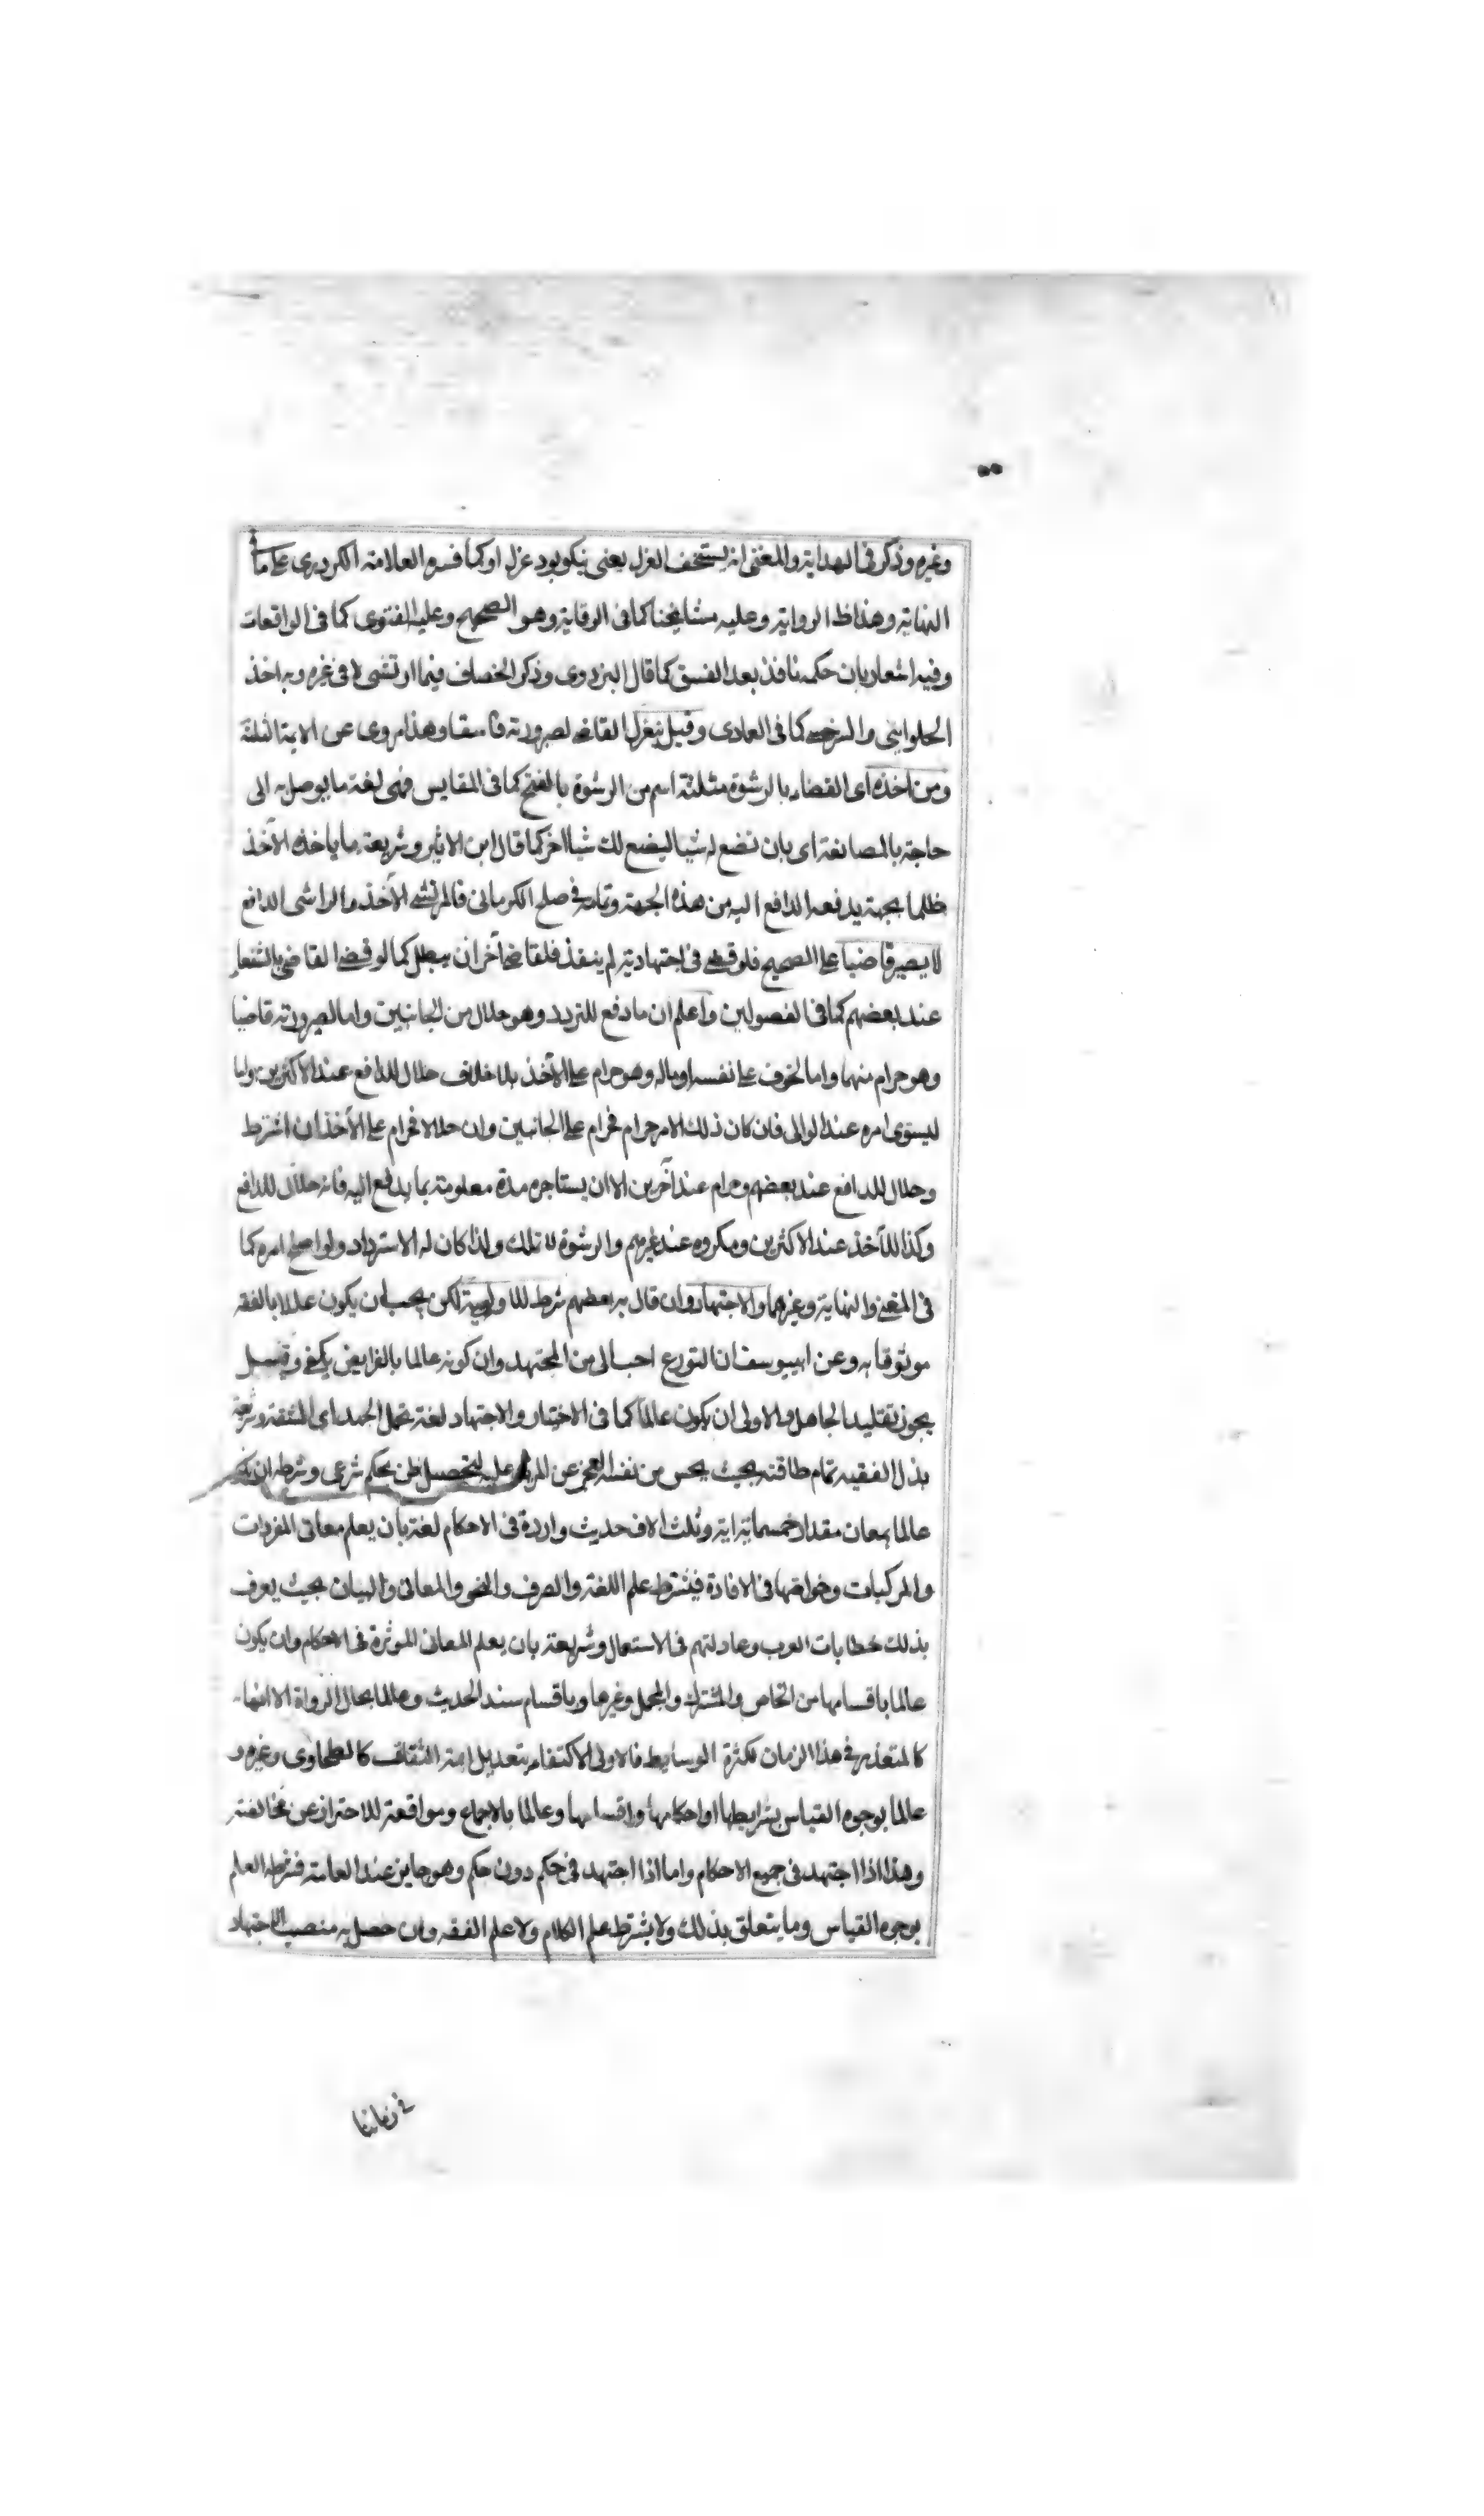 وغيره وذكر في الهداية والمغني انه يستحق العزل يعني نيكو بود عزل او كما فسره العلامة الكردري على ما في
النهاية وهذا ظ الرواية وعليه مشايخنا كما في الوقاية وهو الصحيح وعليه الفتوى كما في الواقعات
وفيه اشعار بان حكمه نافذ بعد الفسق كما قال البزدوى وذكر الخصاف فيما ارتشى لا في غيره وبه اخذ
الحلوايني والسرخسي كما في العمادى وقيل ينعزل القاضي لصيرورته فاسقا وهذا مروى عن الايمة الثلثة
ومن اخذه اى القضاء بالرشوة مثلثة اسم من الرشوة بالفتح كما في المقايس فهى لغة ما يوصل به الى
حاجة بالمصانعة اى بان تضع له شيا ليضع لك شيا اخر كما قال ابن الاثير وشريعة ما ياخذه الآخذ
ظلما بجهة يدفعه الدافع اليه من هذه الجهة وتمامه في صلح الكرماني فالمرتشي الآخذ والراشى الدافع
لا يصير قاضيا على الصحيح فلو قضى في اجتهادية لم ينفذ فلقاض آخر ان يبطل كما لو قضى القاضي بالشفعار
عند بعضهم كما في الفصولين واعلم ان ما دفع للتردد وهو حلال من الجانبين واما لصيرورته قاضيا
وهو حرام منهما واما لخوف على نفسه او ماله وهو حرام على الآخذ بلا خلاف حلال للدافع عند الاكثرين واما
ليسوى امره عند الوالى فان كان ذلك الامر حرام فحرام على الجانبين وان حلالا فحرام على الآخذ ان اشترط
وحلال للدافع عند بعضهم وحرام عند آخرين الا ان يستاجره مدة معلومة بما يدفع اليه فانه حلال للدافع
وكذا للآخذ عند الاكثرين ومكروه عند غيرهم والرشوة لا تملك ولذا كان له الاسترداد ولو اصلح امره كما
في المغني والنهاية وغيرهما والاجتهاد وان قال به بعضهم شرط للاولوية لكن يجب ان يكون عالما بالفقه
موثوقا به وعن ابييوسف ان التورع احب الى من المجتهد وان كونه عالما بالفرايض يكفي وقيل
يجوز تقليد الجاهل والاولى ان يكون عالما كما في الاختيار والاجتهاد لغة تحمل الجهد اى المشقة وشريعة
بذل الفقيه تمام طاقته بحيث يحس من نفسه العجز عن المزيد عليه لتحصيل ظن بحكم شرعى وشرطه ان يكون
عالما بمعان مقدار خمسماية اية وثلث الاف حديث واردة في الاحكام لغة بان يعلم معاني المفردات
والمركبات وخواصها في الافادة فيشترط علم اللغة والصرف والنحو والمعاني والبيان بحيث يعرف
بذلك خطابات العرب وعادتهم في الاستعمال وشريعة بان يعلم المعاني الموثرة في الاحكام وان يكون
عالما باقسامها من الخاص والمشترك والمجمل وغيرها وباقسام سند الحديث وعالما بحال الرواة الا انها
كالمتعذر في هذا الزمان لكثرة الوسايط فالاولى الاكتفاء بتعديل ايمة الثقات كالطحاوى وغيره و
عالما بوجوه القياس بشرايطها واحكامها واقسامها وعالما بالاجماع ومواقعه للاحتراز عن مخالفته
وهذا اذا اجتهد في جميع الاحكام واما اذا اجتهد في حكم دون حكم وهو جايز عند العامة فشرطه العلم
بوجوه القياس وما يتعلق بذلك ولا يشترط علم الكلام ولا علم الفقه وان حصل به منصب الاجتهاد
في زماننا